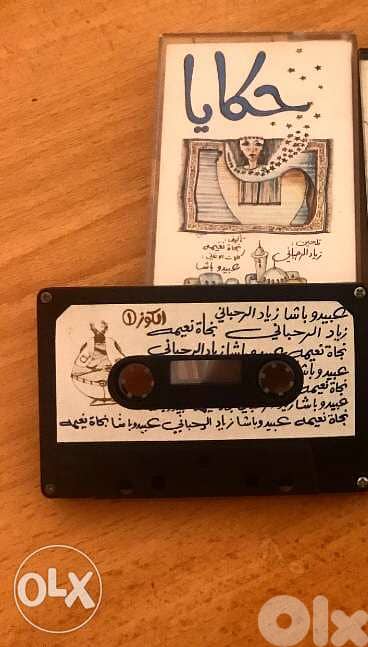 حكايا
تأليف:
نجاة نعيمه
كلمات الاغاني:
عبيدو باشا
تلحين:
زياد الرحباني
الكوز ①
عبيدو باشا زياد الرحباني
زياد الرحباني نجاة نعيمه
نجاة نعيمه عبيدو باشا زياد الرحباني
عبيدو باشا
نجاة نعيمه
عبيدو باشا زياد
نجاة نعيمه عبيدو باشا زياد الرحباني عبيدو باشا نجاة نعيمه
OLX
OLX